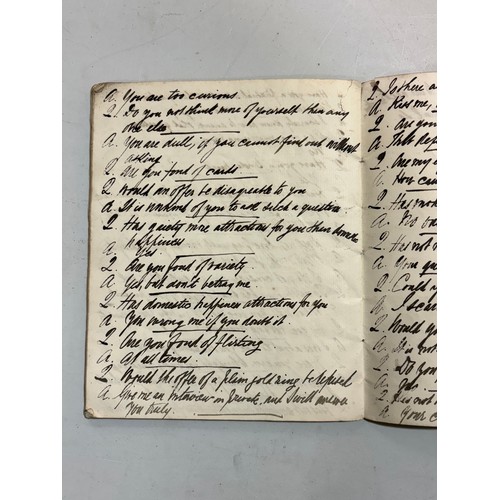 A. You are too curious.
Q. Do you not think more of yourself than any
one else
A. You are dull, if you cannot find out without
asking
Q. Are you fond of cards
Q. Would an offer be disagreeable to you
A. It is unkind of you to ask such a question.
Q. Has gaiety more attractions for you than home
happiness
A. Yes
Q. Are you fond of variety
A. Yes, but don't betray me.
Q. Has domestic happiness attractions for you
A. You wrong me if you doubt it.
Q. Are you fond of flirting.
A. At all times.
Q. Would the offer of a plain gold ring be refused
A. Give me an interview in private, and I will answer
you truly.
Q. Is there a
A. Kiss me,
Q. Are you
A. That
Q. Are my
A. How can
Q. Has
A. No
Q. Has not
A. Your
Q. Could
A. I
Q. Would yo
A. It is not
Q. Do you
A.
Q. Has not
A. Your c